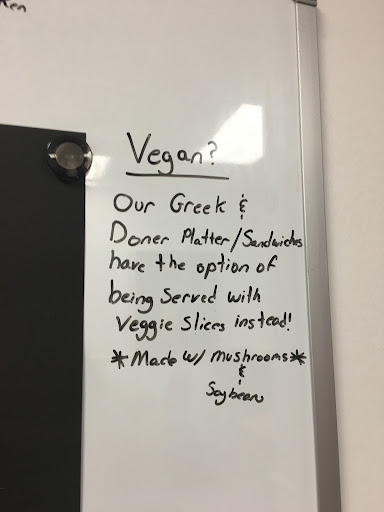 ken
Vegan?
Our Greek &
Doner Platter/Sandwiches
have the option of
being Served with
Veggie Slices instead!
*Made w/ mushrooms*
&
Soybean